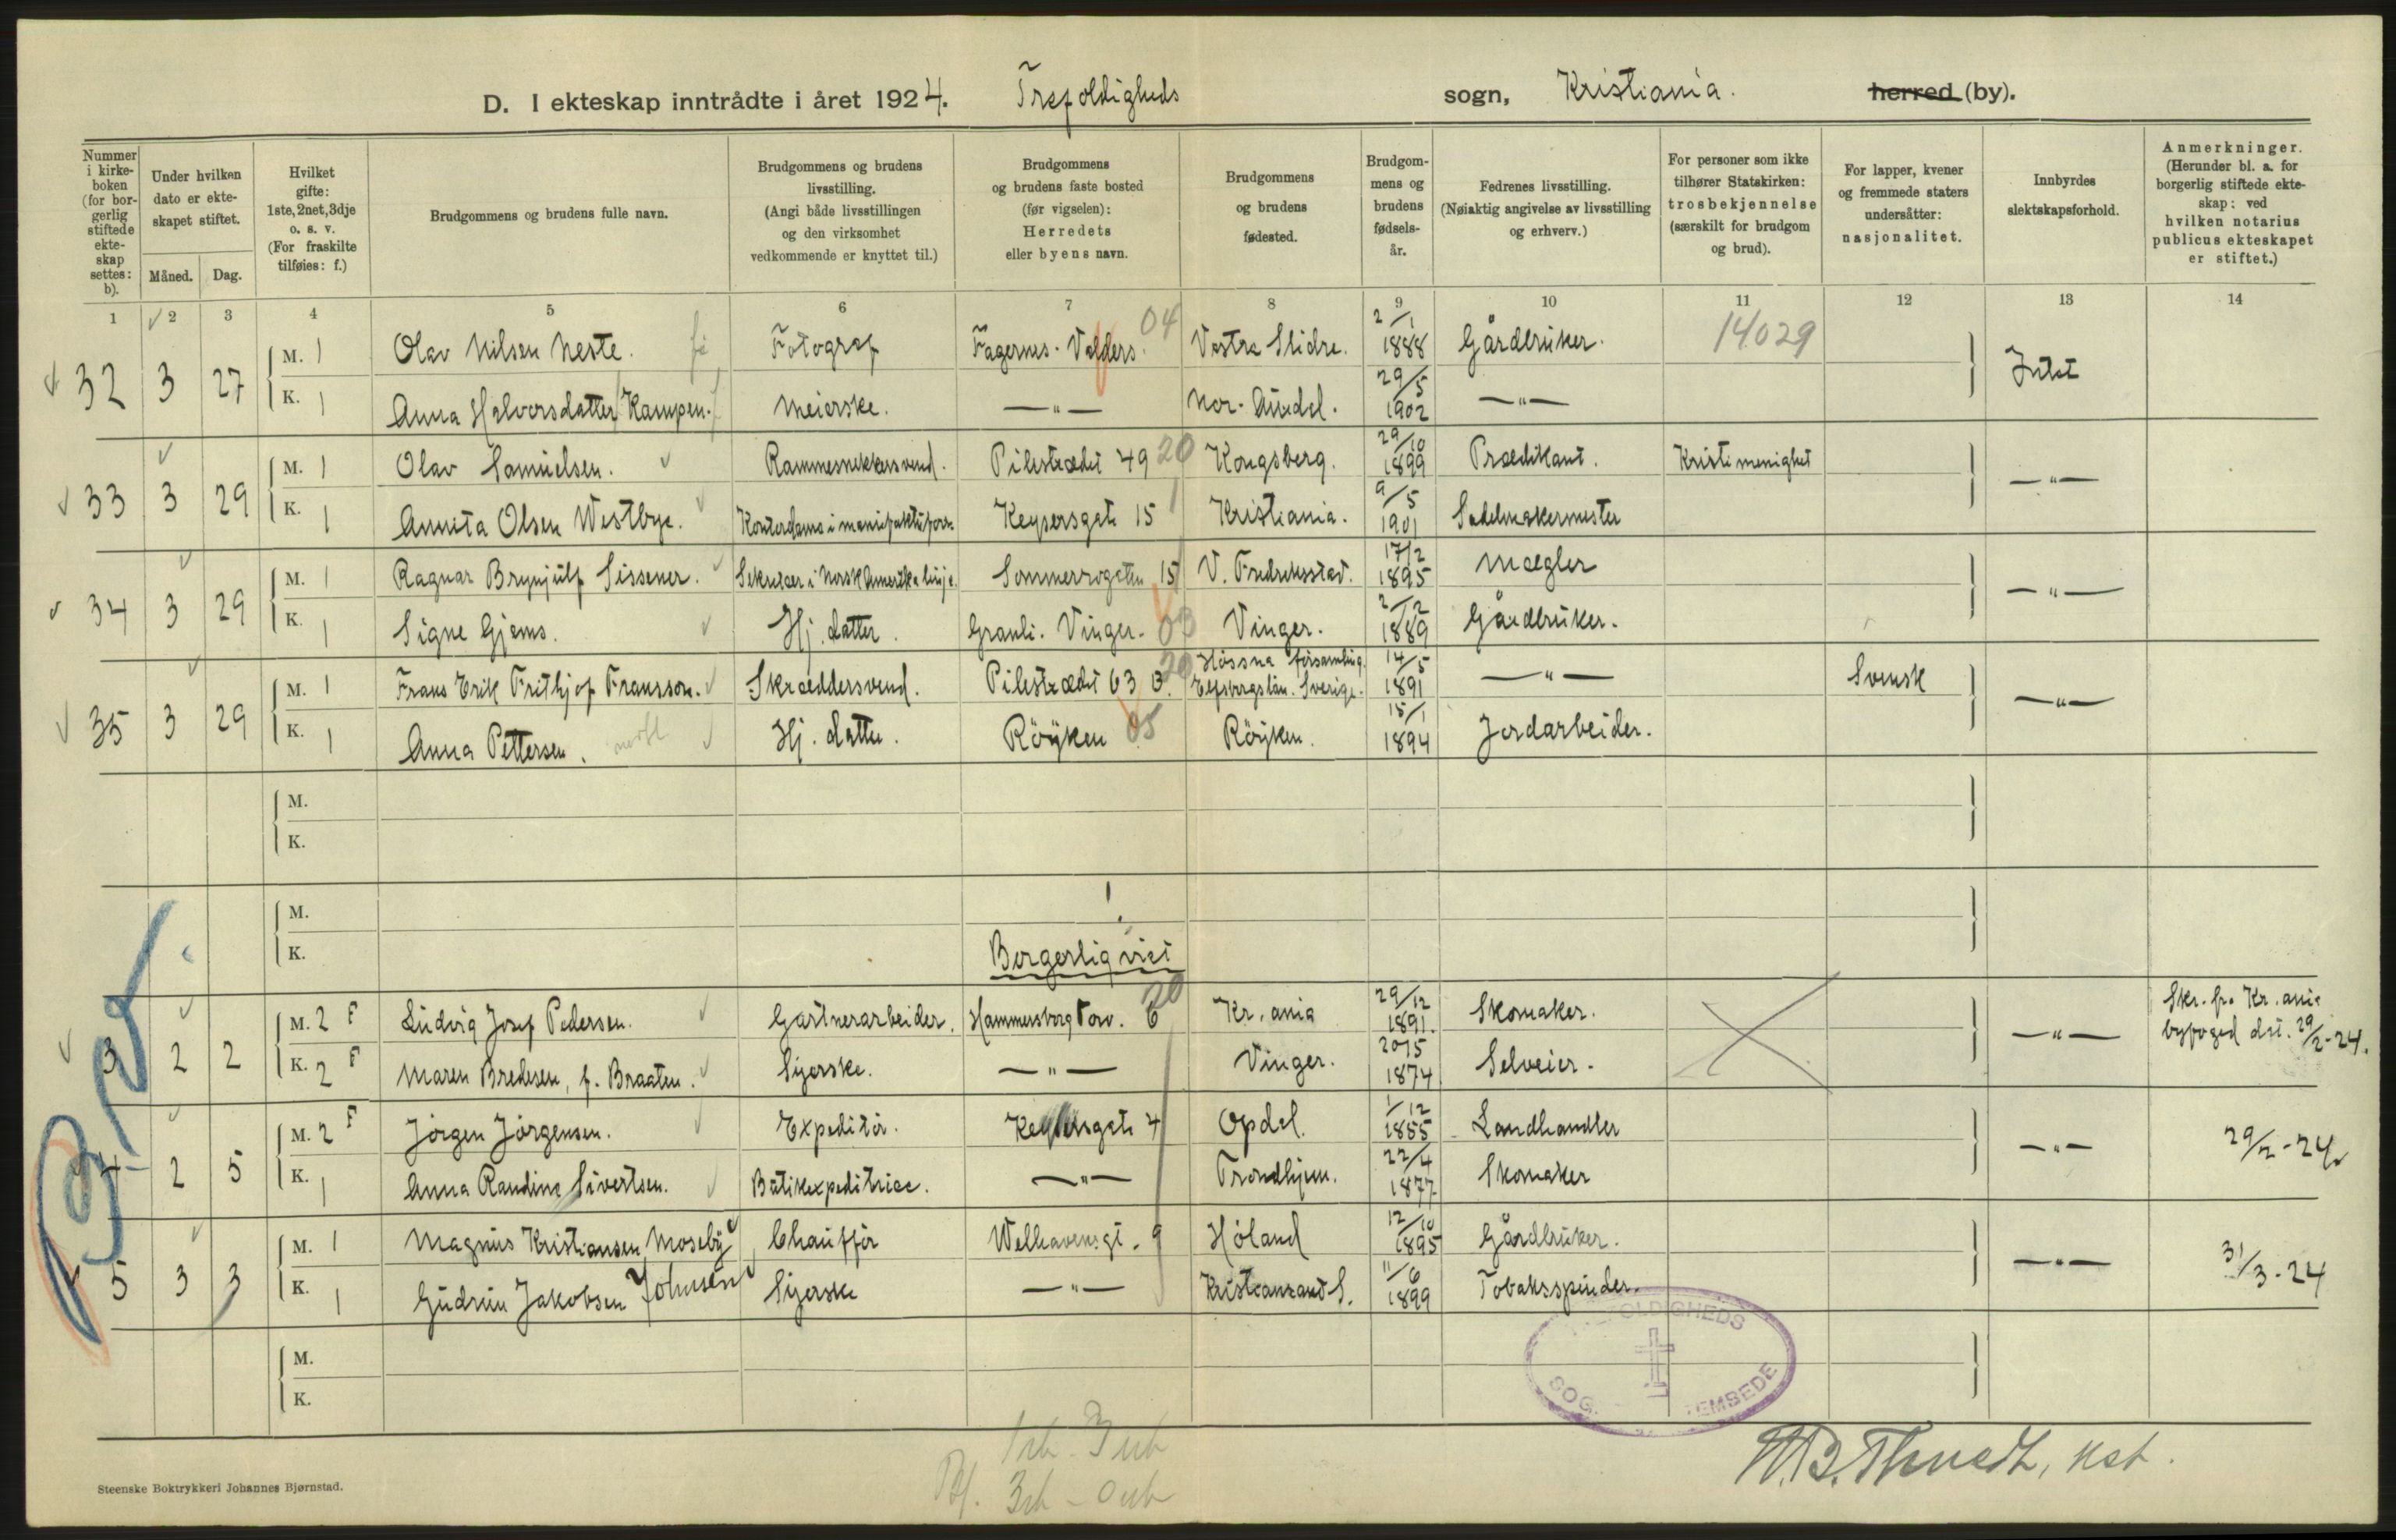 D. I ekteskap inntrådte i året 1924. Trefoldigheds sogn, Kristiania. herred (by).
Nummer i kirkeboken (for borgerlig stiftede ekteskap settes: b).
Under hvilken dato er ekteskapet stiftet.
Måned. Dag.
Hvilket gifte: 1ste, 2net, 3dje o. s. v. (For fraskilte tilføies: f.)
Brudgommens og brudens fulle navn.
Brudgommens og brudens livsstilling. (Angi både livsstillingen og den virksomhet vedkommende er knyttet til.)
Brudgommens og brudens faste bosted (før vigselen): Herredets eller byens navn.
Brudgommens og brudens fødested.
Brudgommens og brudens fødselsår.
Fedrenes livsstilling. (Nøiaktig angivelse av livsstilling og erhverv.)
For personer som ikke tilhører Statskirken: trosbekjennelse (særskilt for brudgom og brud).
For lapper, kvener og fremmede staters undersåtter: nasjonalitet.
Innbyrdes slektskapsforhold.
Anmerkninger. (Herunder bl. a. for borgerlig stiftede ekteskap: ved hvilken notarius publicus ekteskapet er stiftet.)
1 2 3 4 5 6 7 8 9 10 11 12 13 14
32 3 27 M. 1 Olav Nilsen Neste. Fotograf Fagernes - Valders. 04 Vestre Slidre. 2/1 1888 Gårdbruker. 14029 Intet
K. 1 Anna Halvorsdatter Kampen. Meierske. —"— Nor-Aurdal. 29/5 1902 —"—
33 3 29 M. 1 Olav Samuelsen. Rammesnekkersvend. Pilestrædet 49 20 Kongsberg. 29/10 1899 Prædikant. Kristi menighet —"—
K. 1 Annita Olsen Westbye. Kontordame i manufakturforr. Keysersgate 15 Kristiania. 9/5 1901 Sadelmakermester
34 3 29 M. 1 Ragnar Brynjulf Sissener. Sekretær i Norsk Amerika linje. Sommerrogaten 15 V. Fredriksstad. 17/2 1895 Mægler —"—
K. 1 Signe Gjems. Hj. datter. Granli. Vinger. 03 Vinger. 2/12 1889 Gårdbruker.
35 3 29 M. 1 Frans Erik Frithjof Fransson. Skræddersvend. Pilestrædet 63 B. 20 Hössna församling. Elfsborgslän. Sverige. 14/5 1891 —"— Svensk —"—
K. 1 Anna Pettersen. norsk Hj. datter. Röyken 05 Röyken. 15/1 1894 Jordarbeider.
M.
K.
M.
K.
Borgerlig viet
3 2 2 M. 2 F Ludvig Josef Pedersen. Gartnerarbeider. Hammersborg Torv. 6 20 Kr.ania 29/12 1891. Skomaker. —"— Skr. fra Kr.ania byfoged dat. 29/2-24.
K. 2 F Maren Bredesen, f. Braaten. Syerske. —"— Vinger. 20/5 1874 Selveier.
4 2 5 M. 2 F Jörgen Jörgensen. Expeditör. Keysersgate 4 Opdal. 1/12 1855 Landhandler —"— 29/2-24
K. 1 Anna Randine Sivertsen. Butikexpeditrice. —"— Trondhjem. 22/4 1877 Skomaker
5 3 3 M. 1 Magnus Kristiansen Moseby Chaufför Welhavensgt. 9 Höland 12/10 1895 Gårdbruker. —"— 31/3-24
K. 1 Gudrun Jakobsen Johnsen Syerske —"— Kristiansand S. 11/6 1899 Tobaksspinder.
M.
K.
OLDIGHEDS
SOG. EMBEDE
Steenske Boktrykkeri Johannes Bjørnstad.